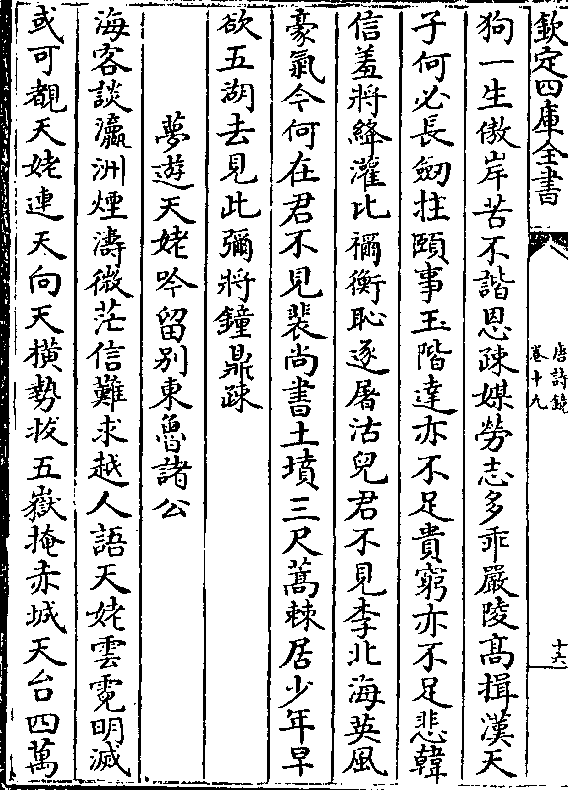 欽定四庫全書
唐詩鏡
卷十九
十六
狗一生傲岸苦不諧恩疎媒勞志多乖嚴陵髙揖漢天
子何必長劒拄頤事玉階達亦不足貴窮亦不足悲韓
信羞將絳灌比禰衡恥逐屠沽兒君不見李北海英風
豪氣今何在君不見裴尚書土墳三尺蒿棘居少年早
欲五湖去見此彌將鐘鼎疎
夢遊天姥吟留别東魯諸公
海客談瀛洲煙濤微茫信難求越人語天姥雲霓明滅
或可覩天姥連天向天橫勢拔五嶽掩赤城天台四萬